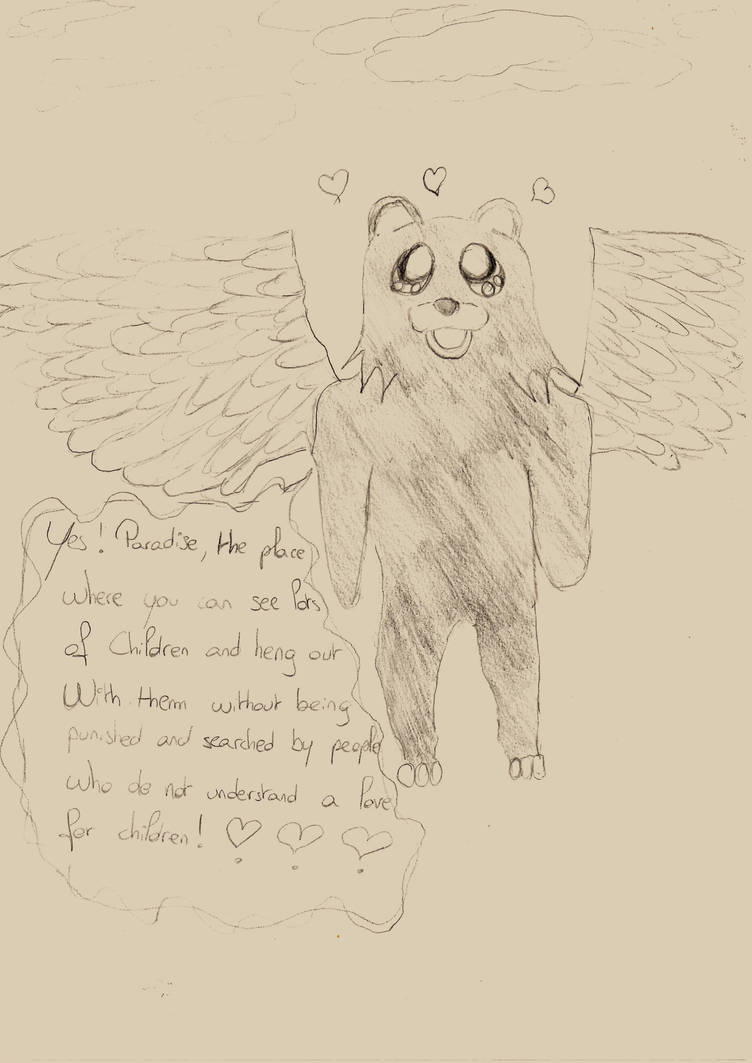 Yes! Paradise, the place
where you can see lots
of Children and heng out
With them without being
punished and searched by people
who do not understand a love
for children!